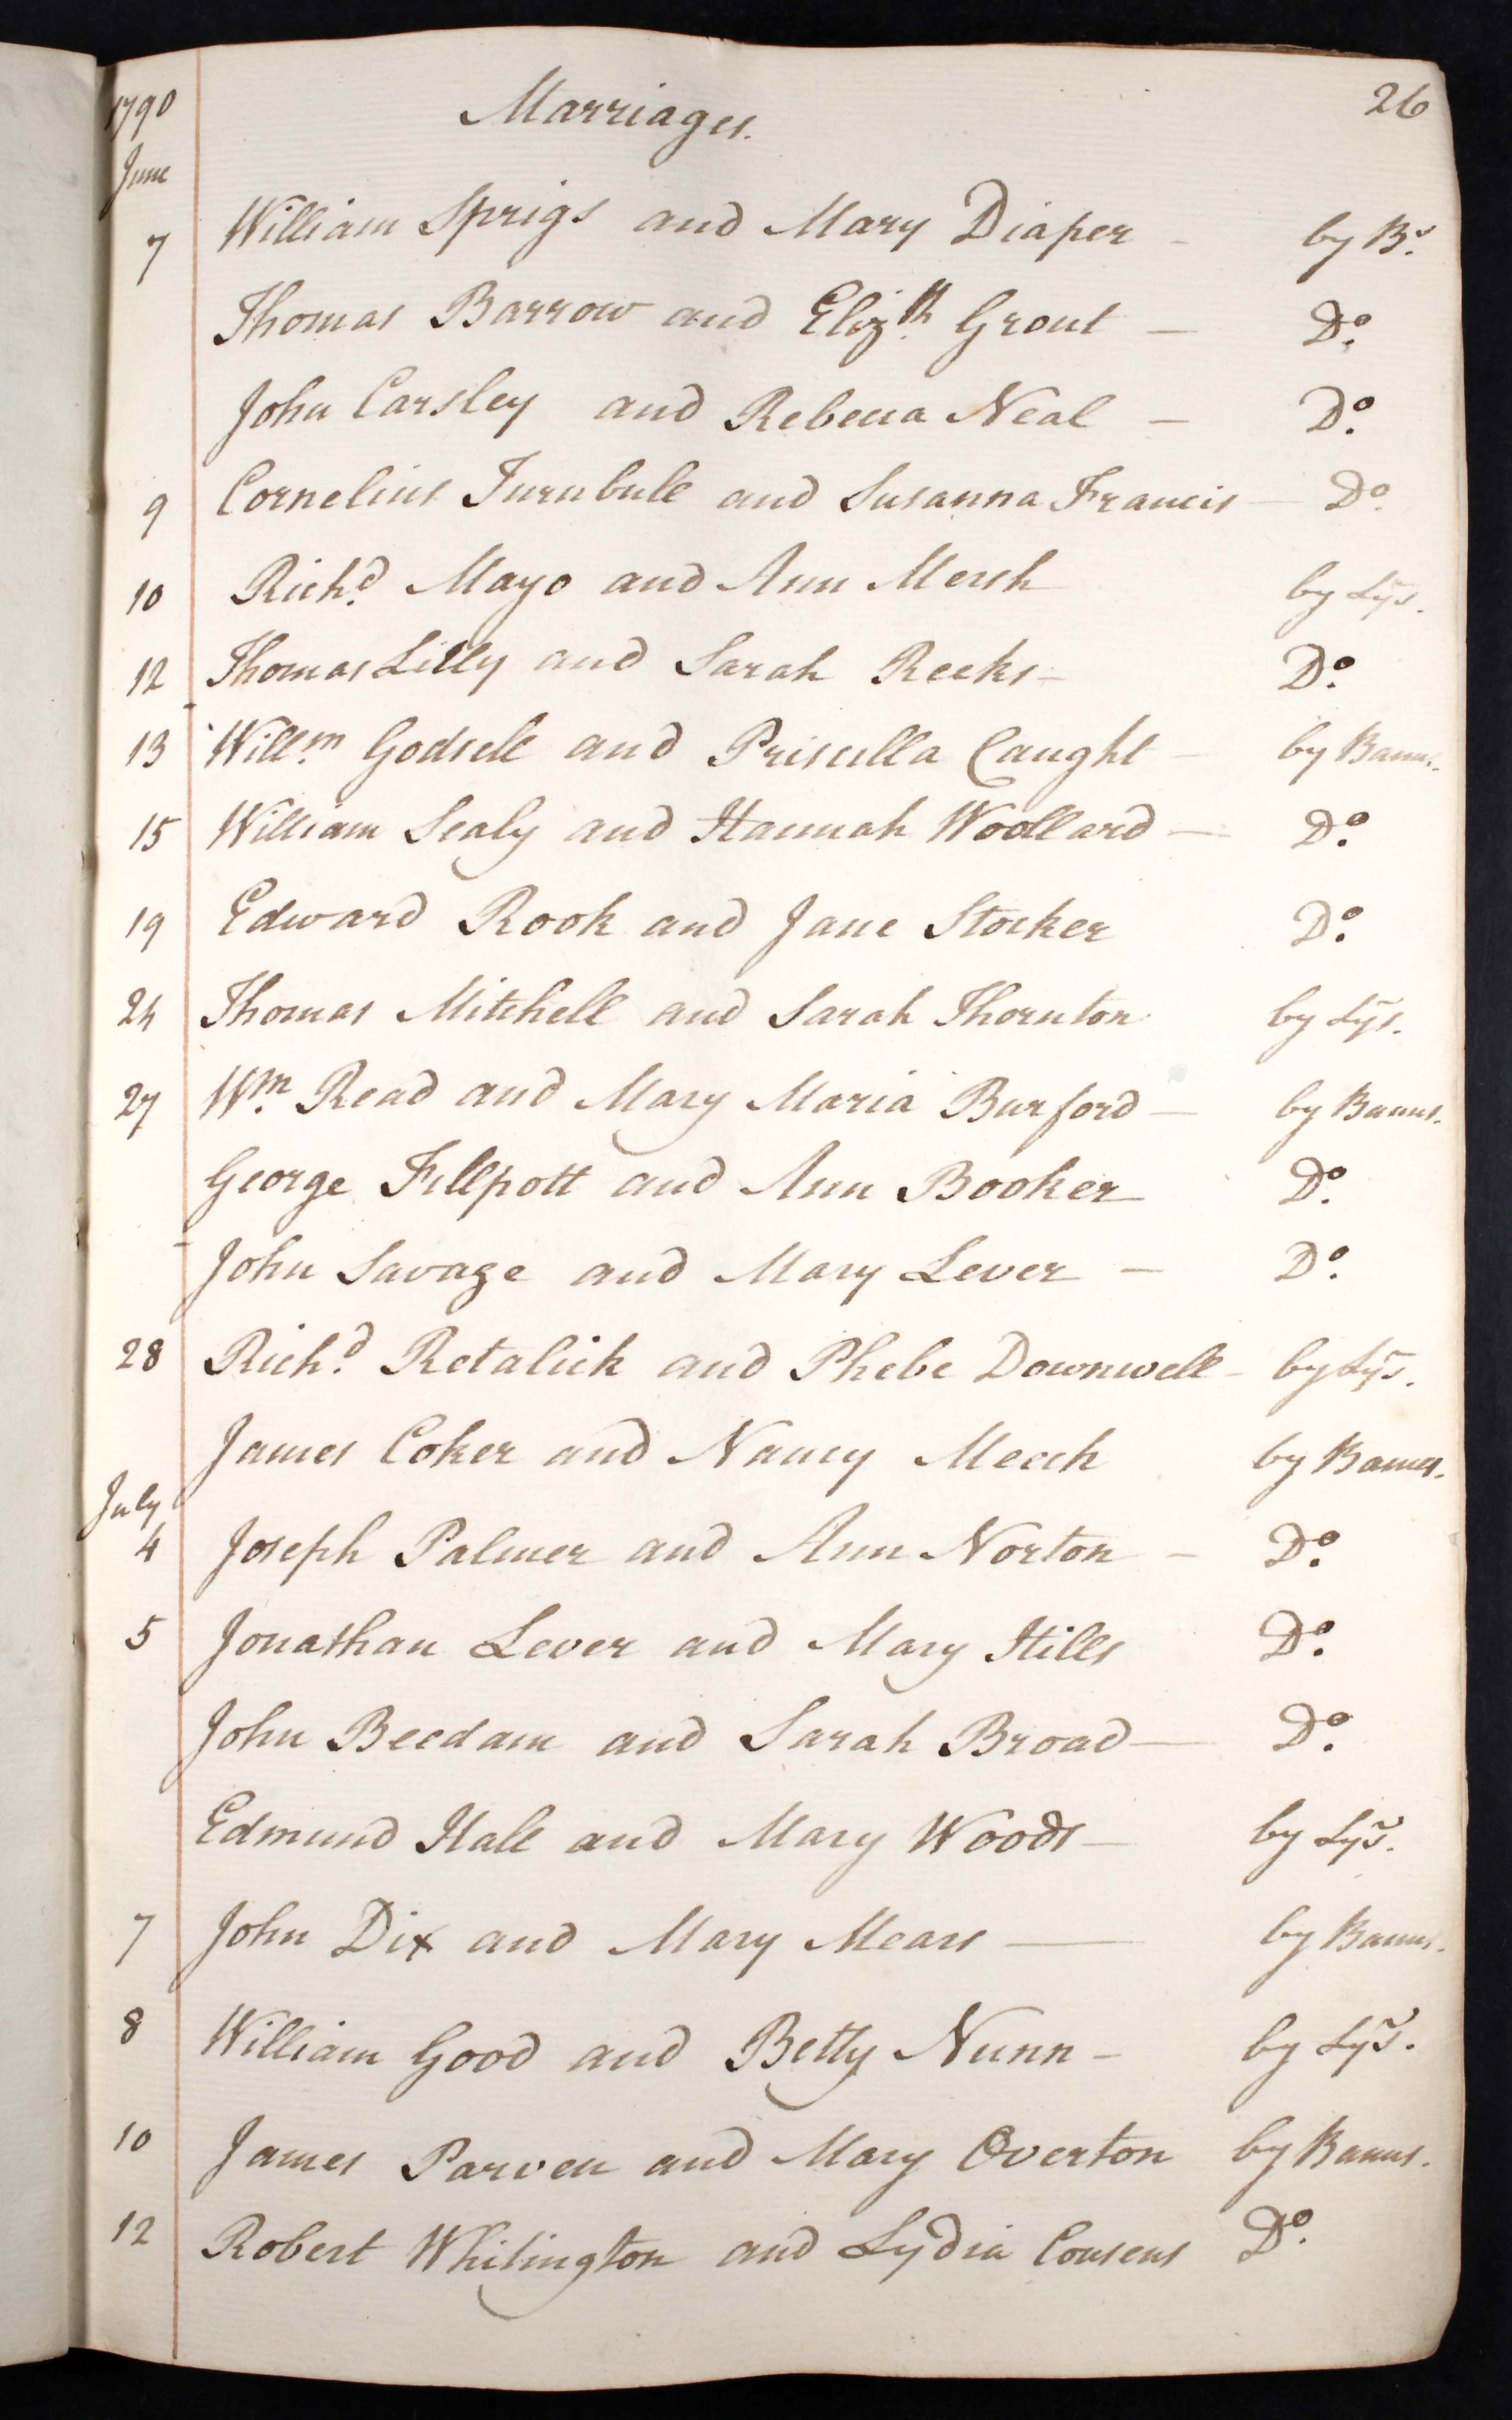 1790 Marriages. 26
June
7 William Sprigs and Mary Diaper - by Bs.
Thomas Barrow and Elizth. Grout - Do.
John Carsley and Rebecca Neal - Do.
9 Cornelius Turnbull and Susanna Francis - Do.
10 Richd. Mayo and Ann Mersh by Lys.
12 Thomas Lilly and Sarah Reeks - Do.
13 Willm. Godsell and Priscilla Caught - by Banns.
15 William Sealy and Hannah Woollard - Do.
19 Edward Rook and Jane Stocker Do.
24 Thomas Mitchell and Sarah Thornton by Lys.
27 Wm. Read and Mary Maria Burford - by Banns.
George Fillpott and Ann Booker Do.
John Savage and Mary Lever - Do.
28 Richd. Retalick and Phebe Downwell - by Lys.
James Coker and Nancy Meech by Banns.
July
4 Joseph Palmer and Ann Norton - Do.
5 Jonathan Lever and Mary Hills Do.
John Beedam and Sarah Broad - Do.
Edmund Hall and Mary Woods - by Lys.
7 John Dix and Mary Mears - by Banns.
8 William Good and Betty Nunn - by Lys.
10 James Parven and Mary Overton by Banns.
12 Robert Whitington and Lydia Cousens Do.